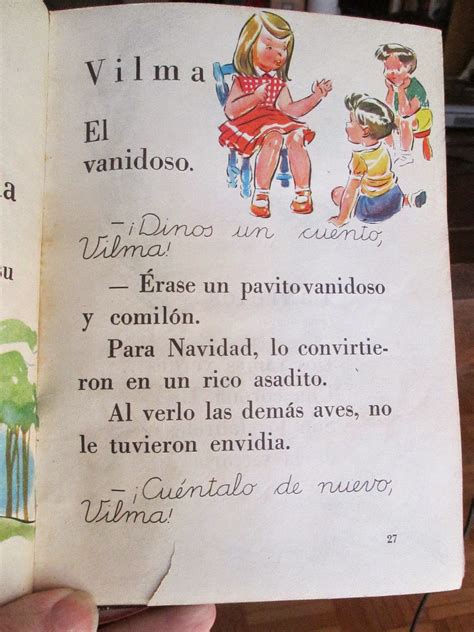 Vilma
El
vanidoso.
— ¡Dinos un cuento,
Vilma!
— Érase un pavito vanidoso
y comilón.
Para Navidad, lo convirtie-
ron en un rico asadito.
Al verlo las demás aves, no
le tuvieron envidia.
— ¡Cuéntalo de nuevo,
Vilma!
27
a
su